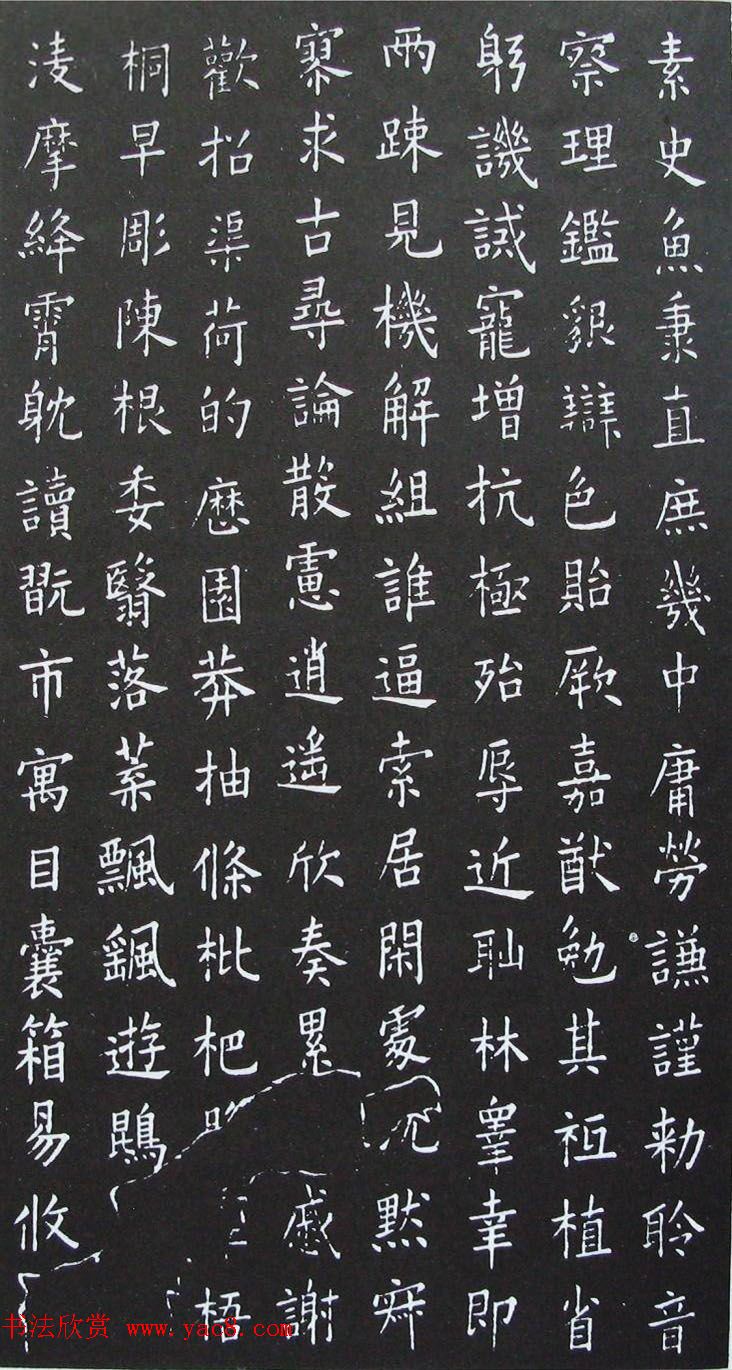 素史魚秉直庶幾中庸勞謙謹勅聆音
察理鑑貌辯色貽厥嘉猷勉其祗植省
躬譏誡寵增抗極殆辱近恥林睪幸即
兩踈見機解組誰逼索居閑處沉默寂
寥求古尋論散慮逍遙欣奏累感謝
歡招渠荷的歷園莽抽條枇杷梧
桐早彫陳根委翳落葉飄颻遊鵾
淩摩絳霄耽讀翫市寓目囊箱易攸
书法欣赏 www.yac8.com